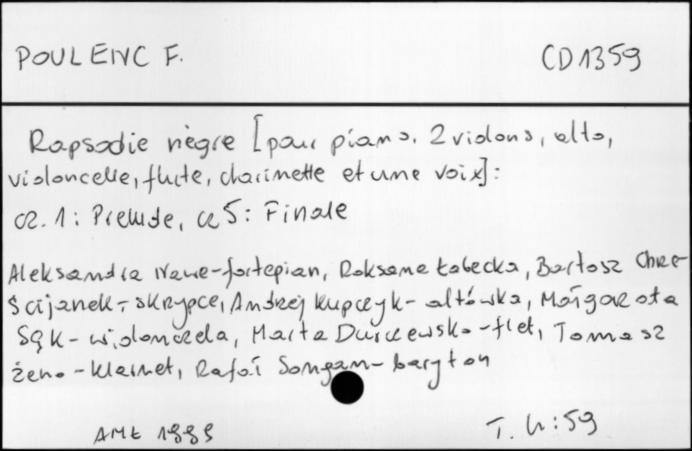 POULENC F. CD1359
Rapsodie nègre [pour piano, 2 violons, alto,
violoncelle, flute, clarinette et une voix]:
cz. 1: Prelude, cz 5: Finale
Aleksandra Nawe-fortepian, Roksana Łabecka, Bartosz Chrz-
ścijanek-skrzypce, Andrzej Kupczyk-altówka, Małgorzata
SĄK-wiolonczela, Marta -flet, Tomasz
Żeno-klarnet, Rafał Songan-baryton
AMŁ 1999 T. 4:59